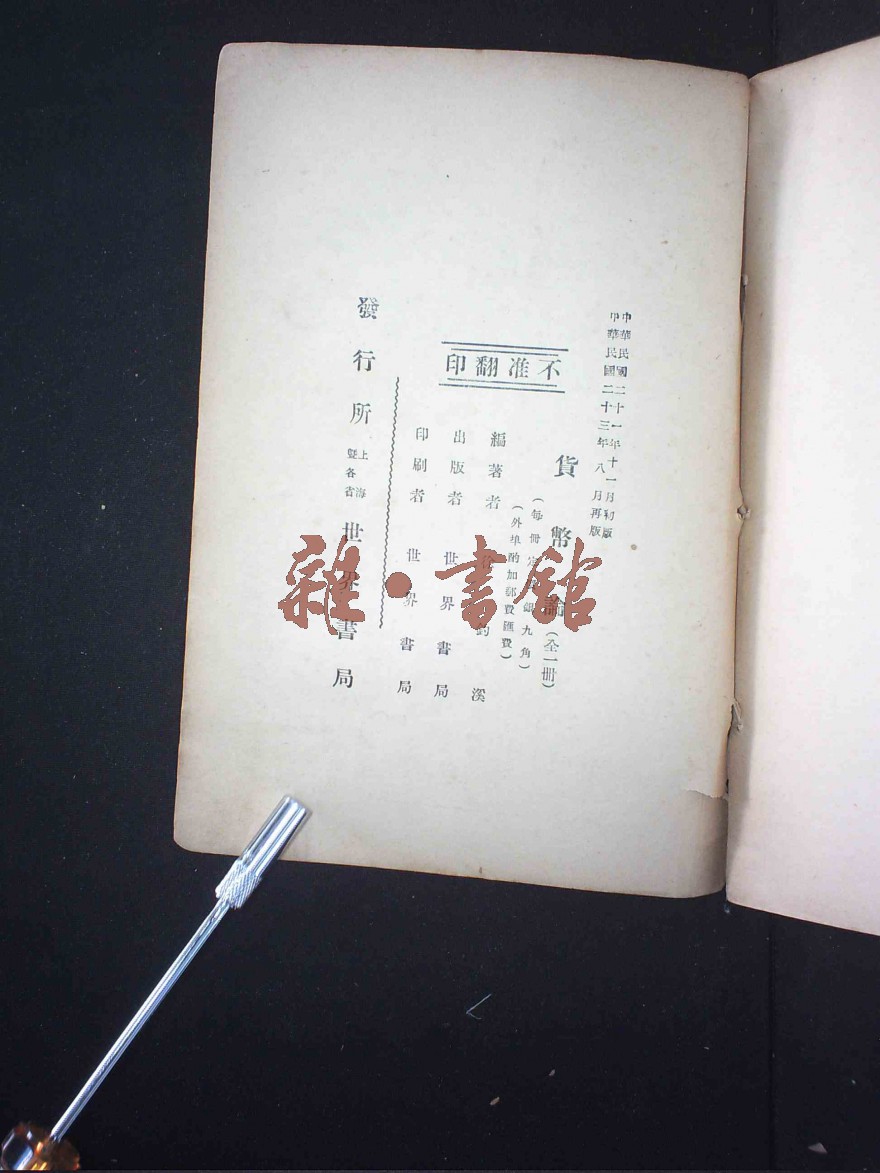 中華民國二十一年十一月初版
中華民國二十三年八月再版
貨幣論(全一冊)
(每冊定銀九角)
(外埠酌加郵費匯費)
不准翻印
編著者 鈞溪
出版者 世界書局
印刷者 世界書局
發行所 上海曁各省 世界書局
雜·書館